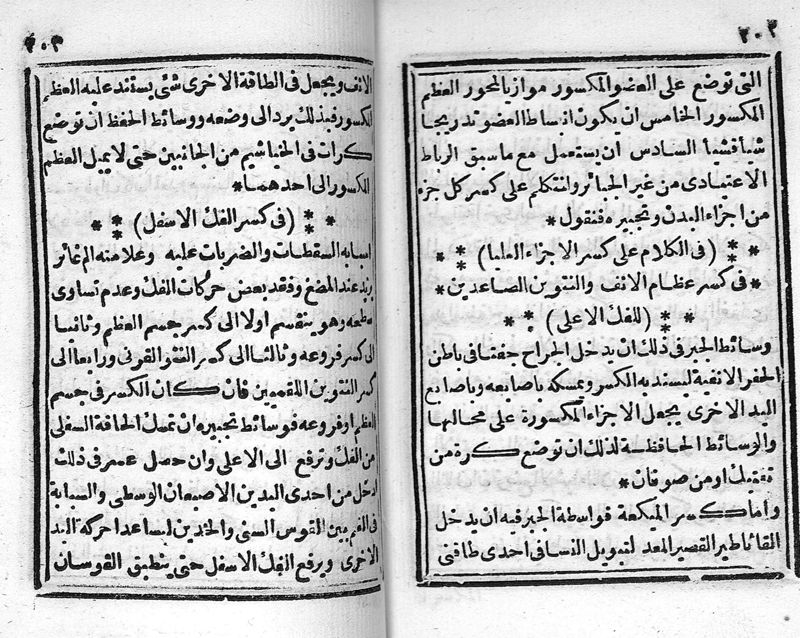 ٢٠٢
التى توضع على العضو المكسور موازيا لمحور العظم
المكسور الخامس ان يكون انبساط العضو تدريجا
شيافشيا السادس ان يستعمل مع ماسبق الرباط
الاعتيادى من غير الجبائر ولنتكلم على كسر كل جزء
من اجزاء البدن وتجبيره فنقول *
* (فى الكلام على كسر الاجزاء العليا) *
* فى كسر عظام الانف والنتوين الصاعدين *
* (للفك الاعلى) *
وسائط الجبر فى ذلك ان يدخل الجراح حفتا فى باطن
الحفر الانفية ليسند به الكسر ويمسكه باصابعه وباصابع
اليد الاخرى يجعل الاجزاء المكسورة على محالها
والوسائط الحافظة لذلك ان توضع كرة من
تفتيك اومن صوفان *
واما كسر الميكعة فواسطة الجبر فيه ان يدخل
القاثاطير القصير المعد لتبويل النسا فى احدى طاقتى
٢٠٣
الانف ويجعل فى الطاقة الاخرى شئ يستند عليه العظم
المكسور فبذلك يرد الى وضعه ووسائط الحفظ ان توضع
كرات فى الخياشيم من الجانبين حتى لا يميل العظم
المكسور الى احدهما *
* (فى كسر الفك الاسفل) *
اسبابه السقطات والضربات عليه وعلامته الم
يزيد عند المضغ وفقد بعض حركات الفك وعدم تساوى
سطحه وهو ينقسم اولا الى كسر جسم العظم وثانيا
الى كسر فروعه وثالثا الى كسر النتو القرنى ورابعا الى
كسر النتوين اللقميين فان كان الكسر فى جسم
العظم اوفروعه فوسائط تجبيره ان تمسك الحافة السفلى
من الفك وترفع الى الاعلى وان حصل عسر فى ذلك
ادخل من احدى اليدين الاصبعان الوسطى والسبابة
فى الفم بين القوس السنى والخدين ليساعدا حركة اليد
الاخرى ويرفع الفك الاسفل حتى ينطبق القوسان